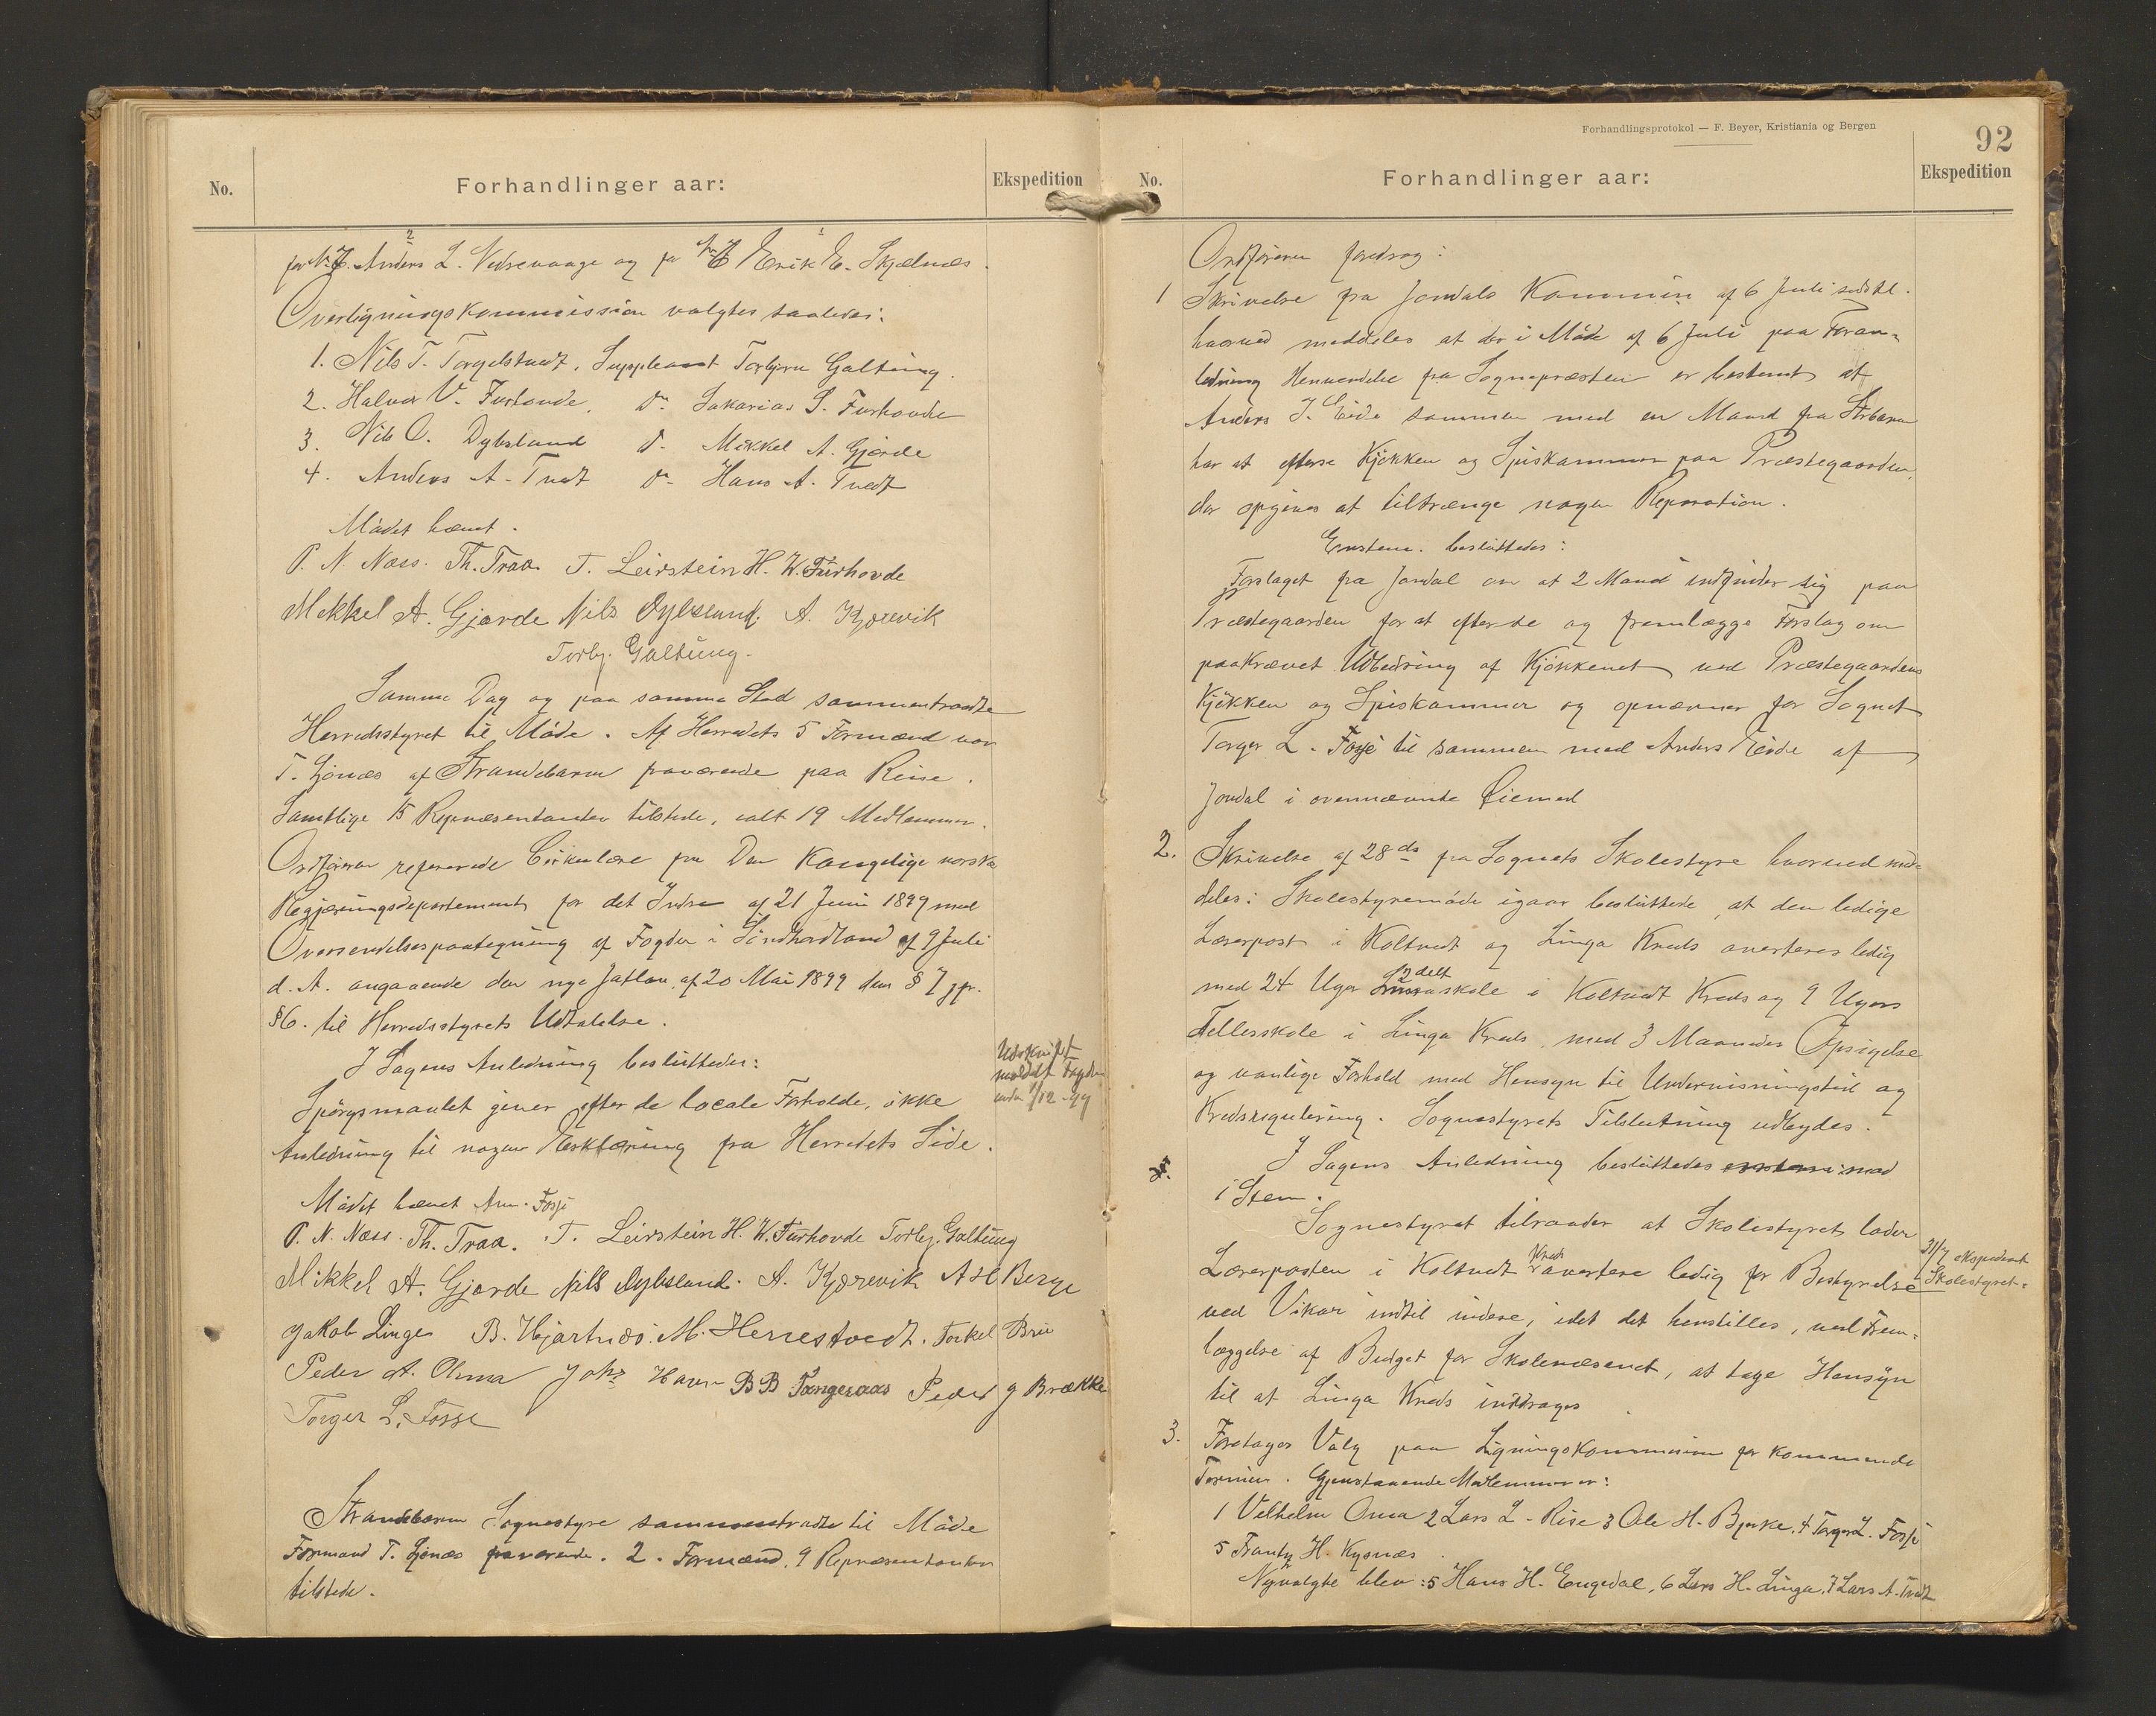 No.
Forhandlinger aar:
Ekspedition
for No. 7. Anders L. Vedrevaage og for No 8 Erik E. Skjelnæs.
Overligningskommission valgtes saaledes:
1. Nils T. Torgilstvedt, Suppleant Torbjørn Galtung.
2. Halvor V. Furhovde, do. Sakarias S. Furhovde
3. Nils O. Dybsland do. Mikkel A. Gjerde
4. Anders A. Tvedt do. Hans A. Tvedt
Mødet hævet.
P. N. Næss. Th. Traa. T. Leirstein H. W. Furhovde
Mikkel A. Gjærde Nils Dybsland. A. Kjørevik
Torbj. Galtung.
Samme Dag og paa samme Sted sammentraadte
Herredsstyret til Møde. Af Herredets 5 Formænd var
T. Gjønæs af Strandebarm fraværende paa Reise.
Samtlige 15 Repræsentanter tilstede, ialt 19 Medlemmer.
Ordføreren refererede Cirkulære fra Den Kongelige norske
Regjeringsdepartement for det Indre af 21 Juni 1899 med
Oversendelsespaategning af Fogden i Søndhordland af 9 Juli
d. A. angaaende den nye Jagtlov af 20 Mai 1899 dens § 7 jfr.
§ 6. til Herredsstyrets Udtalelse.
I Sagens Anledning besluttedes:
Spørgsmaalet giver efter de locale Forholde, ikke
Anledning til nogen Erklæring fra Herredets Side.
Udskrift
meddelt Fogden
1/12-99
Mødet hævet Anm. Fosse
P. N. Næss. Th. Traa. T. Leirstein H. W. Furhovde Torbj. Galtung
Mikkel A. Gjærde Nils Dybsland. A. Kjørevik A H Berge
Jakob Linge B. Hjartnes. M. Herrestvedt. Torkel Bru
Peder A. Oma Johs Haven B B Tangeraas Peder J Brække
Torger L. Fosse
Strandebarm Sognestyre sammentradte til Møde
Formand T. Gjønæs fraværende. 2. Formænd, 9 Repræsentanter
tilstede.
Forhandlingsprotokol — F. Beyer, Kristiania og Bergen
92
No.
Forhandlinger aar:
Ekspedition
Ordføreren foredrog:
1 Skrivelse fra Jondals Kommun af 6 Juli sidstl.
hvorved meddeles at der i Møde af 6 Juli paa Foran-
ledning Henvendelse fra Sognepræsten er bestemt at
Anders J. Eide sammen med en Mand fra Strbarm
har at efterse Kjøkken og Spiskammer paa Præstegaarden,
der opgives at tiltrænge nogen Reparation.
Enstem. besluttedes:
Forslaget fra Jondal om at 2 Mand indfinder sig paa
Præstegaarden for at efterse og fremlægge Forslag om
paakrævet Udbedring af Kjøkkenet ved Præstegaardens
Kjøkken og Spiskammer og opnævner for Sognet
Torger L. Fosse til sammen med Anders Eide af
Jondal i ovennævnte Øiemed
2. Skrivelse af 28 ds fra Sognets Skolestyre hvorved med-
deles: Skolestyremøde igaar besluttede, at den ledige
Lærerpost i Koltvedt og Linga Kreds averteres ledig
med 24 Uger 2 delt skole i Koltvedt Kreds og 9 Ugers
Fellesskole i Linga Kreds, med 3 Maaneders Opsigelse
og vanlige Forhold med Hensyn til Undervisningstid og
Kredsregulering. Sognestyrets Tilslutning udbydes.
I Sagens Anledning besluttedes enstem: med
i Stem.
Sognestyret tilraader at Skolestyret lader
Lærerposten i Koltvedt Kreds avertere ledig for Bestyrelse
ved Vikar indtil videre, idet det henstilles, ved Frem-
læggelse af Budget for Skolevæsenet, at tage Hensyn
til at Linga Kreds inddrages
31/7 ekspederet
Skolestyret.
3. Foretages Valg paa Ligningskommission for kommende
Termin. Gjenstaaende Medlemmer er:
1 Velhelm Oma 2 Lars L. Rise 3 Ole H. Bjerke, 4 Torger L. Fosse
5 Frantz H. Kysnæs.
Nyvalgte blev: 5 Hans H. Engedal, 6 Lars H. Linga, 7 Lars A. Tvedt